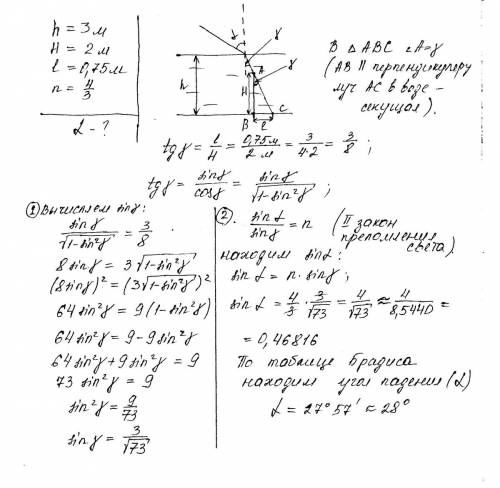 h = 3 м
H = 2 м
l = 0,75 м
n = 4/3
α - ?
α
γ
A
γ
h
H
B
l
C
В △ ABC ∠A=γ
(AB || перпендикуляру
луч AC в воде -
секущая).
tgγ = l/H = 0,75м/2м = 3/(4·2) = 3/8 ;
tgγ = sinγ/cosγ = sinγ/√(1-sin²γ) ;
① Вычисляем sinγ:
sinγ/√(1-sin²γ) = 3/8
8 sinγ = 3√(1-sin²γ)
(8sinγ)² = (3√(1-sin²γ))²
64 sin²γ = 9(1-sin²γ)
64 sin²γ = 9-9sin²γ
64 sin²γ+9sin²γ = 9
73 sin²γ = 9
sin²γ = 9/73
sinγ = 3/√73
②. sinα/sinγ = n (II закон
преломления
света)
находим sinα:
sinα = n · sinγ ;
sinα = 4/3 · 3/√73 = 4/√73 ≈ 4/8,5440 =
= 0,46816
По таблице Брадиса
находим угол падения (α)
α = 27° 57' ≈ 28°